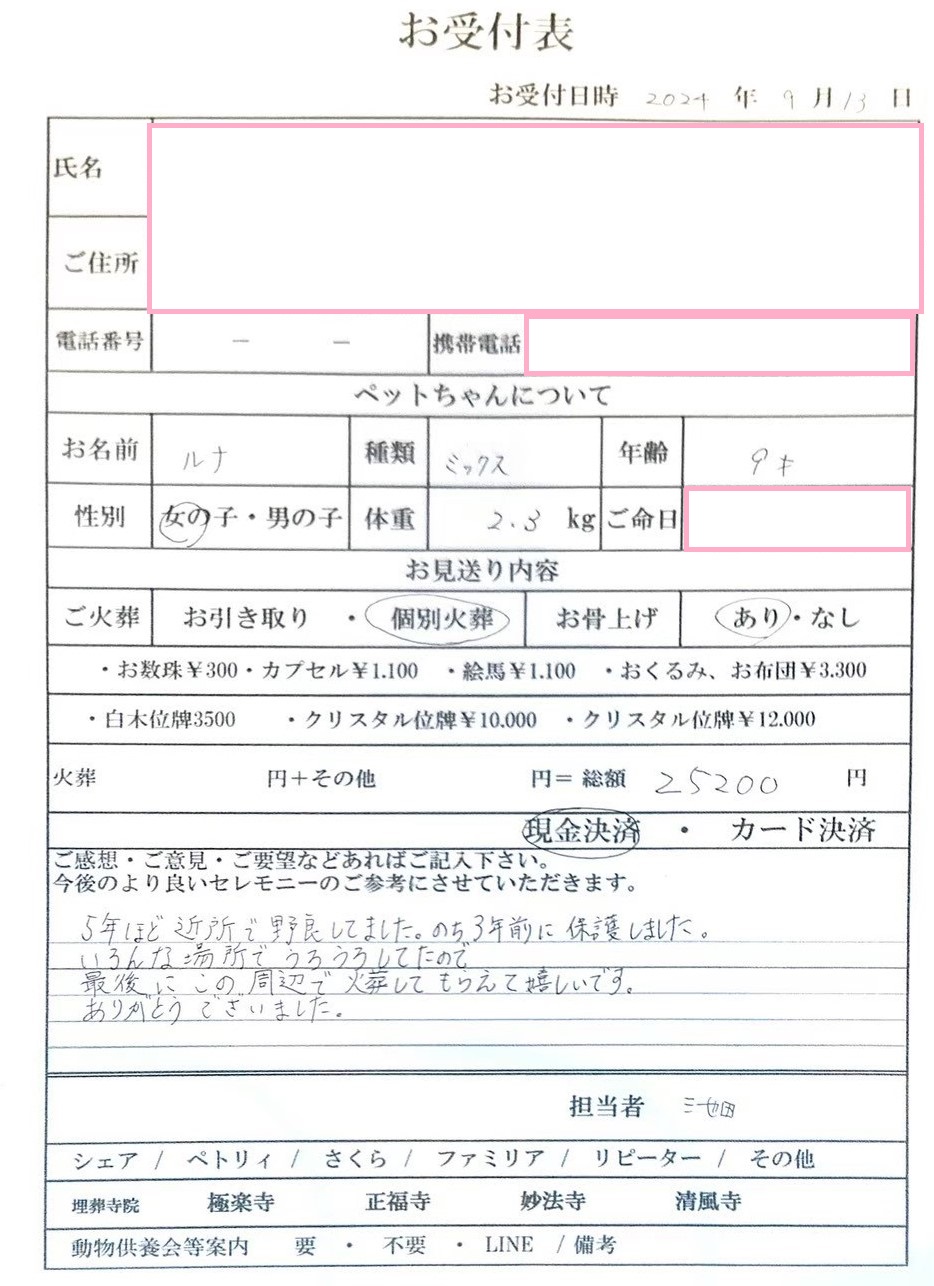 お受付表
お受付日時 2024 年 9 月 13 日
氏名
ご住所
電話番号 － － 携帯電話
ペットちゃんについて
お名前 ルナ 種類 ミックス 年齢 9才
性別 女の子・男の子 体重 2.3 kg ご命日
お見送り内容
ご火葬 お引き取り ・ 個別火葬 お骨上げ あり・なし
・お数珠￥300・カプセル￥1.100 ・絵馬￥1.100 ・おくるみ、お布団￥3.300
・白木位牌3500 ・クリスタル位牌￥10.000 ・クリスタル位牌￥12.000
火葬 円＋その他 円＝ 総額 25200 円
現金決済 ・ カード決済
ご感想・ご意見・ご要望などあればご記入下さい。
今後のより良いセレモニーのご参考にさせていただきます。
5年ほど近所で野良してました。のち3年前に保護しました。
いろんな場所でうろうろしてたので
最後にこの周辺で火葬してもらえて嬉しいです。
ありがとうございました。
担当者
シェア / ペトリィ / さくら / ファミリア / リピーター / その他
埋葬寺院 極楽寺 正福寺 妙法寺 清風寺
動物供養会等案内 要 ・ 不要 ・ LINE / 備考